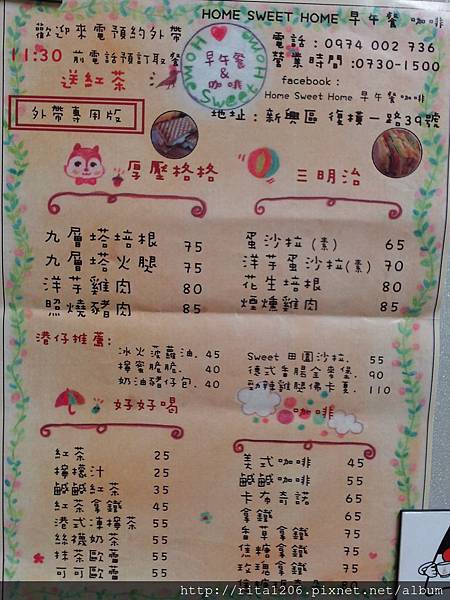 HOME SWEET HOME 早午餐 咖啡
歡迎來電預約外帶
11:30 前電話預訂取餐
送紅茶
外帶專用版
Home Sweet Home
早午餐
&
咖啡
電話：0974 002 736
營業時間：0730-1500
facebook：
Home Sweet Home 早午餐咖啡
地址：新興區 復橫一路39號
厚壓格格
九層塔培根 75
九層塔火腿 75
洋芋雞肉 80
照燒豬肉 85
三明治
蛋沙拉(素) 65
洋芋蛋沙拉(素) 70
花生培根 80
煙燻雞肉 85
港仔推薦：
冰火菠蘿油. 45
檸蜜脆脆. 40
奶油豬仔包. 40
Sweet 田園沙拉. 55
德式香腸全麥堡. 90
勁辣雞腿佛卡夏. 110
好好喝
紅茶 25
檸檬汁 25
鹹鹹紅茶 35
紅茶拿鐵 45
港式凍檸茶 55
絲襪奶茶 55
抹茶歐蕾 55
可可歐蕾 55
咖啡
美式咖啡 45
鹹鹹咖啡 55
卡布奇諾 65
拿鐵 65
香草拿鐵 75
焦糖拿鐵 75
玫瑰拿鐵 75
80
http://rita1206.pixnet.net/album